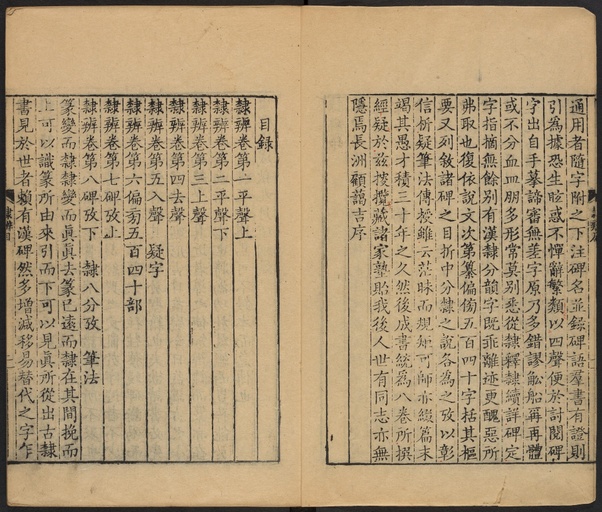 通用者隨字附之下注碑名並錄碑語羣書有證則
引為據恐生眩惑不憚辭繁類以四聲便於討閱碑
字出自手摹諦審無差字原乃多錯謬舩船再再體
或不分血皿朋多形常莫別悉從隸釋隸續詳碑定
字指摘無餘別有漢隸分韻字既乖離迹更醜惡所
弗取也復依說文次第纂偏傍五百四十字括其樞
要又列敘諸碑之目折中分隸之說各為之攷以彰
信析疑筆法傳授雖云茫昧而規矩可師亦綴篇末
竭其愚才積三十年之久然後成書統為八卷所撰
經疑於茲搜攬藏諸家塾貽我後人世有同志亦無
隱焉長洲顧藹吉序
目錄
隸辨卷第一平聲上
隸辨卷第二平聲下
隸辨卷第三上聲
隸辨卷第四去聲
隸辨卷第五入聲 疑字
隸辨卷第六偏旁五百四十部
隸辨卷第七碑攷上
隸辨卷第八碑攷下 隸八分攷 筆法
篆變而隸隸變而眞眞去篆已遠而隸在其間挽而
上可以識篆所由來引而下可以見眞所從出古隸
書見於世者賴有漢碑然多增減移易替代之字乍